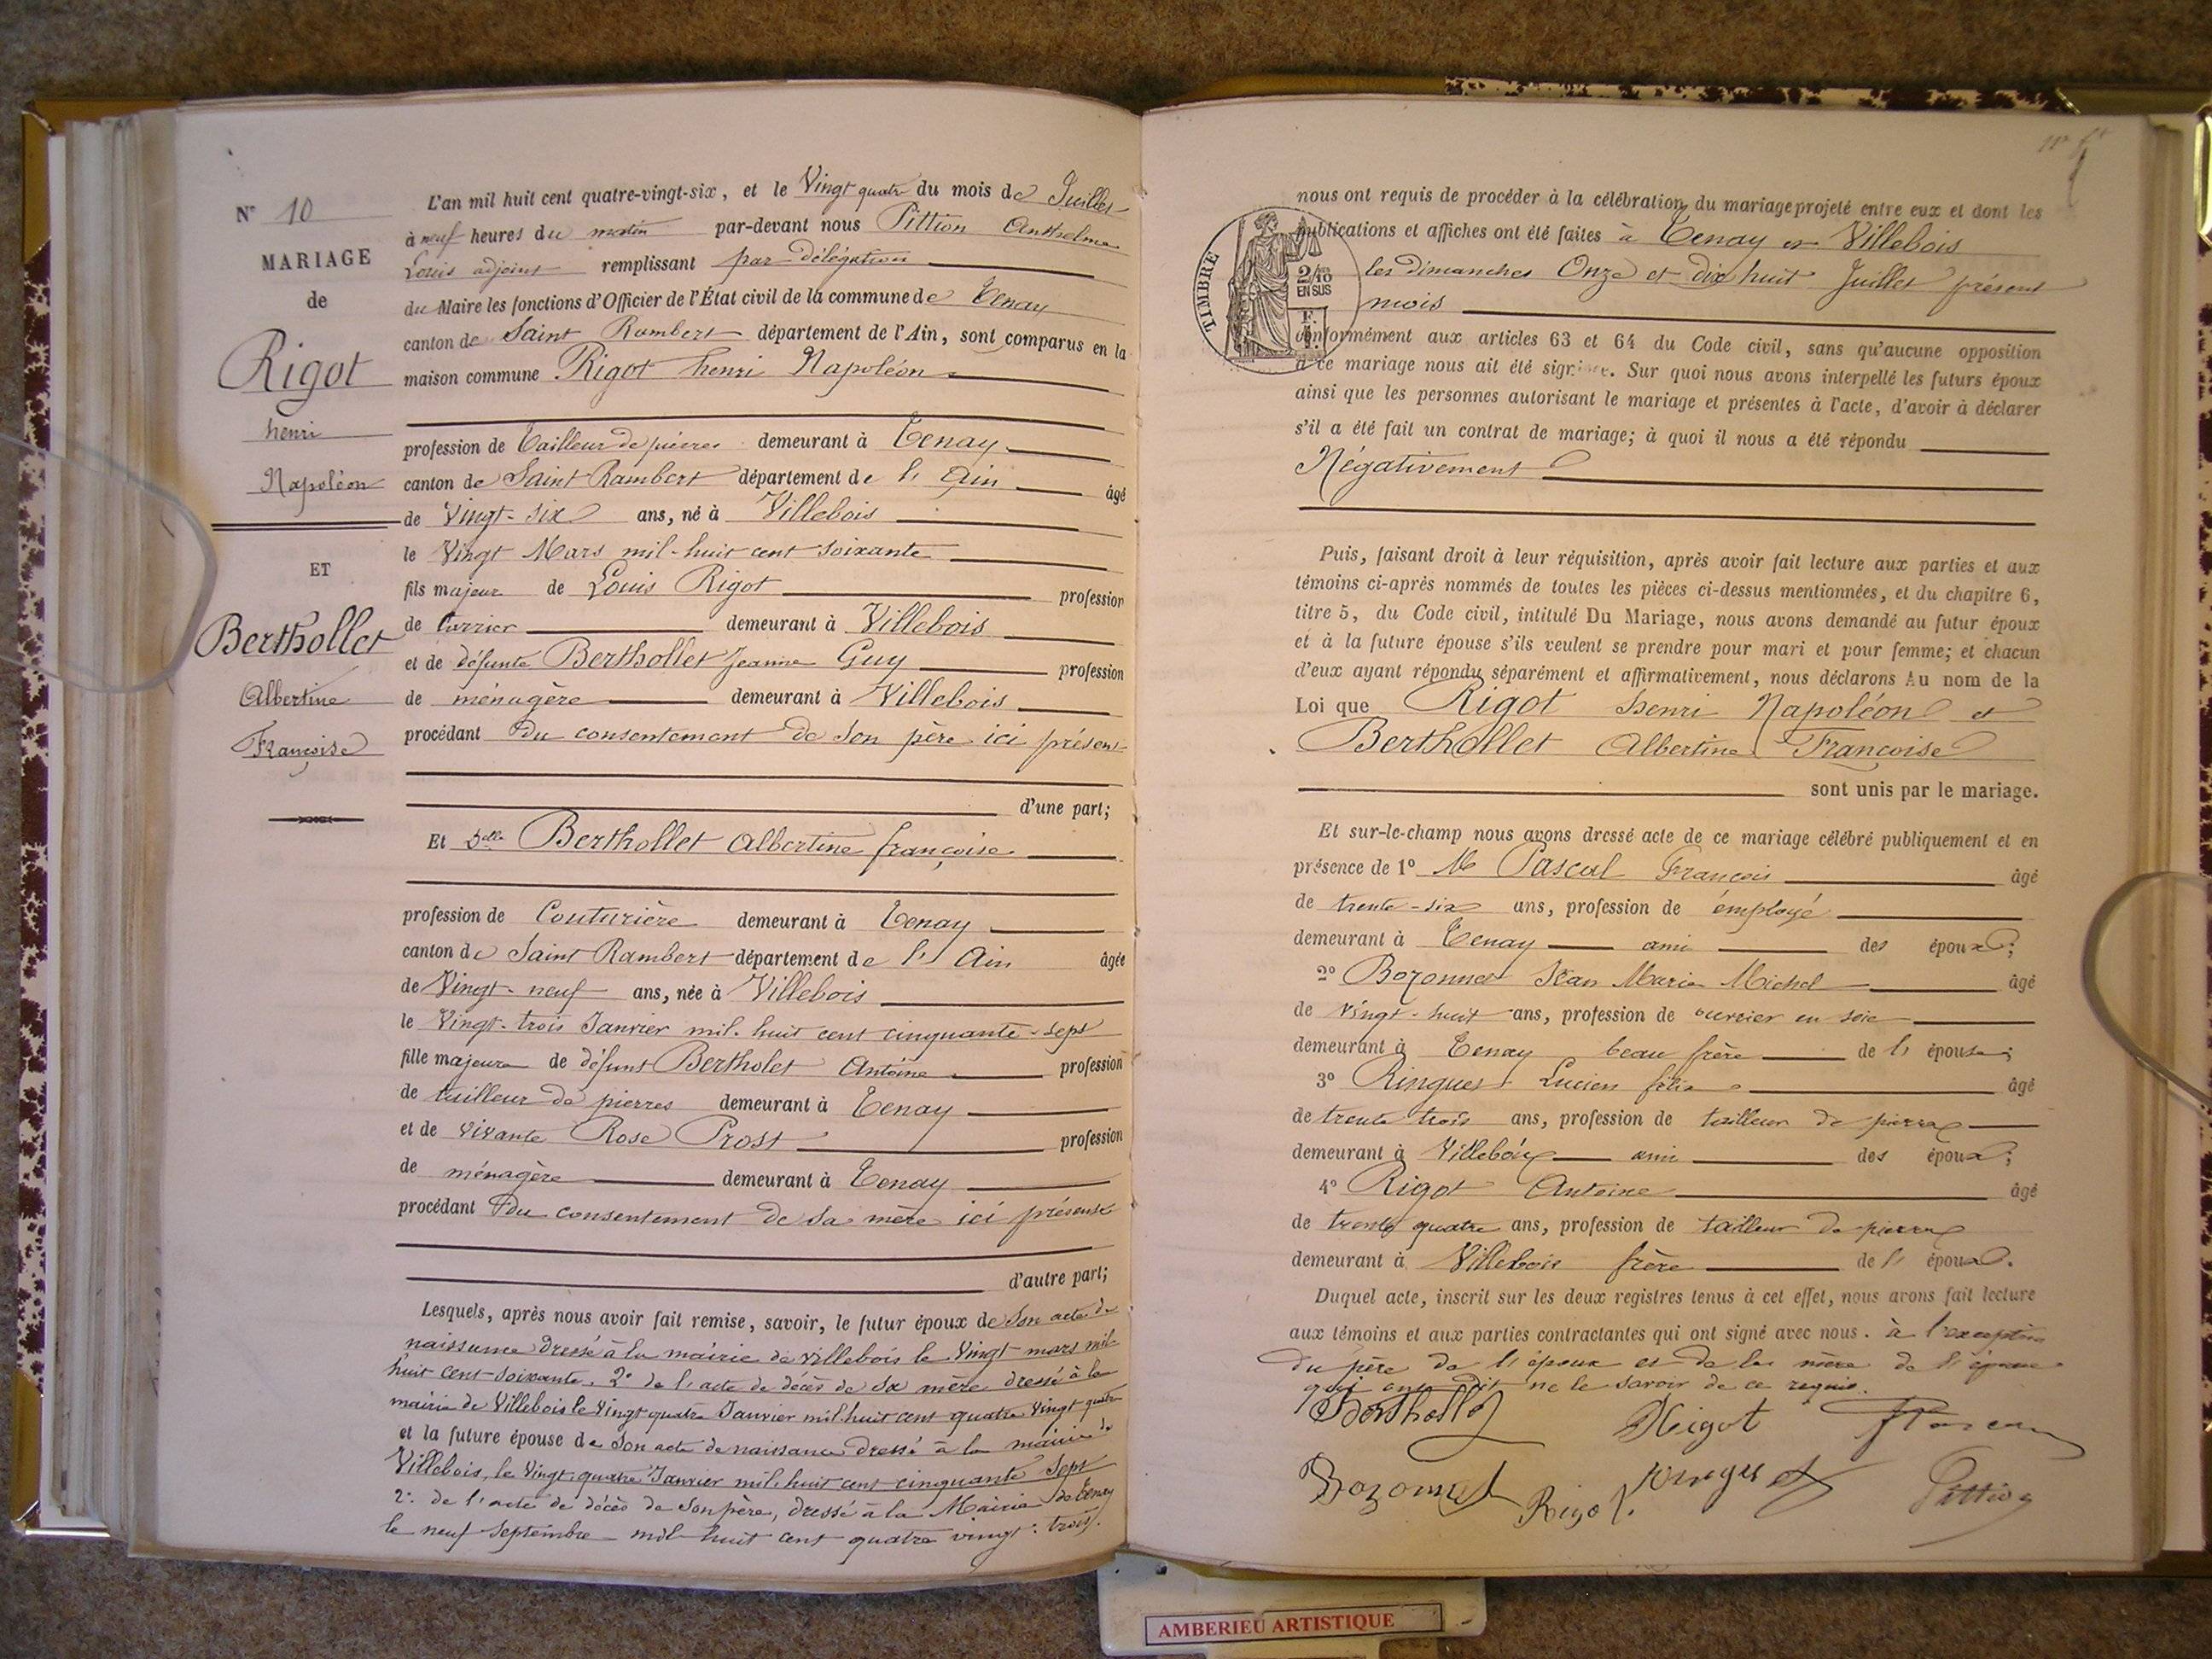 N° 10
MARIAGE
de
Rigot
henri
Napoléon
ET
Berthollet
Albertine
Françoise
L'an mil huit cent quatre-vingt-six, et le Vingt quatre du mois de Juillet
à neuf heures du matin par-devant nous Pittion Anthelme
Louis adjoint remplissant par délégation
du Maire les fonctions d'Officier de l'État civil de la commune de Tenay
canton de Saint Rambert département de l'Ain, sont comparus en la
maison commune Rigot henri Napoléon
profession de Tailleur de pierres demeurant à Tenay
canton de Saint Rambert département de l'Ain âgé
de Vingt-six ans, né à Villebois
le Vingt Mars mil-huit cent soixante
fils majeur de Louis Rigot profession
de demeurant à Villebois
et de défunte Berthollet Jeanne Guy profession
de ménagère demeurant à Villebois
procédant du consentement de son père ici présent
d'une part;
Et Dlle Berthollet Albertine françoise
profession de Couturière demeurant à Tenay
canton de Saint Rambert département de l'Ain âgée
de Vingt-neuf ans, née à Villebois
le Vingt-trois Janvier mil-huit cent cinquante-sept
fille majeure de défunt Bertholet Antoine profession
de tailleur de pierres demeurant à Tenay
et de vivante Rose Prost profession
de ménagère demeurant à Tenay
procédant du consentement de sa mère ici présente
d'autre part;
Lesquels, après nous avoir fait remise, savoir, le futur époux de son acte de
naissance dressé à la mairie de Villebois le Vingt mars mil-
huit cent-soixante. 2° de l'acte de décès de sa mère dressé à la
mairie de Villebois le Vingt quatre Janvier mil huit cent quatre vingt quatre
et la future épouse de son acte de naissance dressé à la mairie de
Villebois, le Vingt-quatre Janvier mil-huit cent cinquante sept
2° de l'acte de décès de son père, dressé à la Mairie de Tenay
le neuf septembre mil huit cent quatre vingt-trois.
nous ont requis de procéder à la célébration du mariage projeté entre eux et dont les
publications et affiches ont été faites à Tenay et Villebois
les dimanches Onze et dix huit Juillet présent
mois
TIMBRE
2/10 EN SUS
conformément aux articles 63 et 64 du Code civil, sans qu'aucune opposition
à ce mariage nous ait été signifiée. Sur quoi nous avons interpellé les futurs époux
ainsi que les personnes autorisant le mariage et présentes à l'acte, d'avoir à déclarer
s'il a été fait un contrat de mariage; à quoi il nous a été répondu
Négativement
Puis, faisant droit à leur réquisition, après avoir fait lecture aux parties et aux
témoins ci-après nommés de toutes les pièces ci-dessus mentionnées, et du chapitre 6,
titre 5, du Code civil, intitulé Du Mariage, nous avons demandé au futur époux
et à la future épouse s'ils veulent se prendre pour mari et pour femme; et chacun
d'eux ayant répondu séparément et affirmativement, nous déclarons Au nom de la
Loi que Rigot henri Napoléon et
Berthollet Albertine Françoise
sont unis par le mariage.
Et sur-le-champ nous avons dressé acte de ce mariage célébré publiquement et en
présence de 1° M Pascal François âgé
de trente-six ans, profession de employé
demeurant à Tenay ami des époux;
2° Bozonnet Jean Marie Michel âgé
de vingt-huit ans, profession de ouvrier en soie
demeurant à Tenay beau frère de l'épouse;
3° Ringuet Lucien félix âgé
de trente trois ans, profession de tailleur de pierres
demeurant à Villebois ami des époux;
4° Rigot Antoine âgé
de trente quatre ans, profession de tailleur de pierres
demeurant à Villebois frère de l'époux.
Duquel acte, inscrit sur les deux registres tenus à cet effet, nous avons fait lecture
aux témoins et aux parties contractantes qui ont signé avec nous. à l'exception
du père de l'époux et de la mère de l'épouse
qui ont dit ne le savoir de ce requis.
Berthollet Rigot
Bozonnet Rigot Ringuet Pittion
AMBERIEU ARTISTIQUE